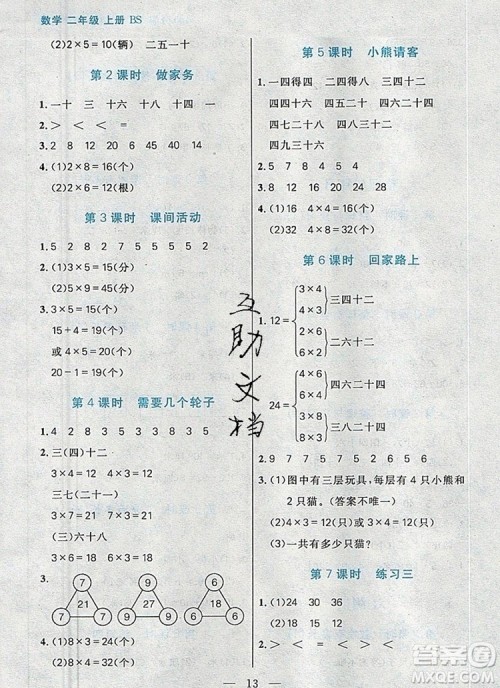 数学 二年级 上册 BS
(2)2×5=10(辆) 二五一十
第2课时 做家务
1.一十 三十 十六 十八 八 十
2.> < < = < =
3.2 8 12 8 20 40 14
4.(1)2×8=16(个)
(2)2×6=12(根)
第3课时 课间活动
1.5 2 8 3 7 5 5 5 5 2
2.(1)3×5=15(分)
(2)5×3=15(分)
3.3×5=15(个)
15+4=19(个)
4×4=16(个)
20-1=19(个)
第4课时 需要几个轮子
1.4 2 8 3 5 3 8 3 3 9
2.三(四)十二
3×4=12 4×3=12
三七(二十一)
3×7=21 7×3=21
(三)六十八
3×6=18 6×3=18
3.
7 21 7 7
9 27 9 9
6 18 6 6
4.(1)8×3=24(个)
(2)4×3=12(个)
第5课时 小熊请客
1.一四得四 二四得八 三四十二
四四十六 四五二十 四六二十四
四七二十八 四八三十二
四九三十六
2.5 7 8 5 4 5 4
3.8 12 16 24 28 32
4.(1)16 4×4=16(个)
(2)32 4×8=32(个)
第6课时 回家路上
1.12= 3×4 4×3 三四十二
2×6 6×2 二六十二
24= 4×6 6×4 四六二十四
3×8 8×3 三八二十四
2.7 5 9 6 7 8 5 9
3.(1)图中有三层玩具,每层有4只小熊和
2只猫。(答案不唯一)
(2)4×3=12(只) 3×4=12(只)
(3)一共有多少只猫?
第7课时 练习三
1.(1)24 30 36
(2)15 20 35
2.> < < = = >
13
互助文档
答案圈
MXQE.COM